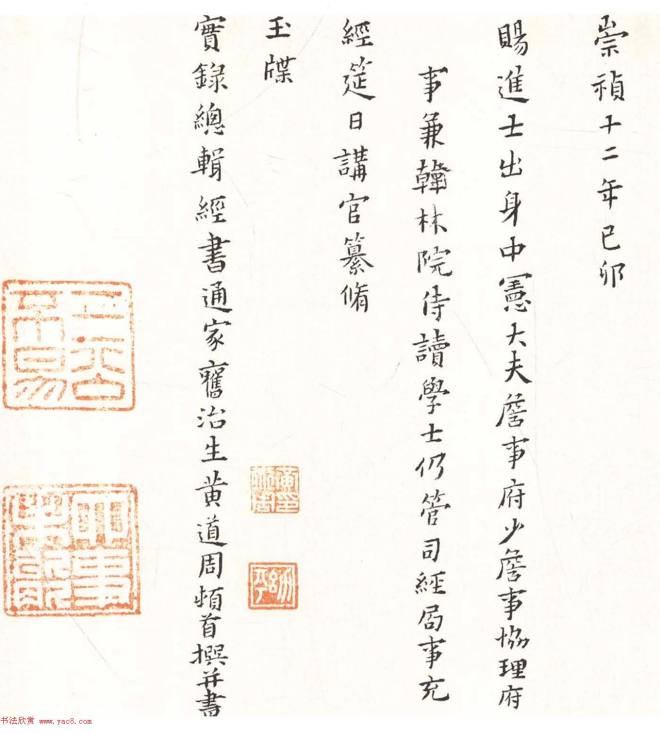 崇禎十二年己卯
賜進士出身中憲大夫詹事府少詹事協理府
事兼翰林院侍讀學士仍管司經局事充
經筵日講官纂脩
玉牒
實錄總輯經書通家舊治生黃道周頓首撰并書
书法欣赏 www.yac8.com